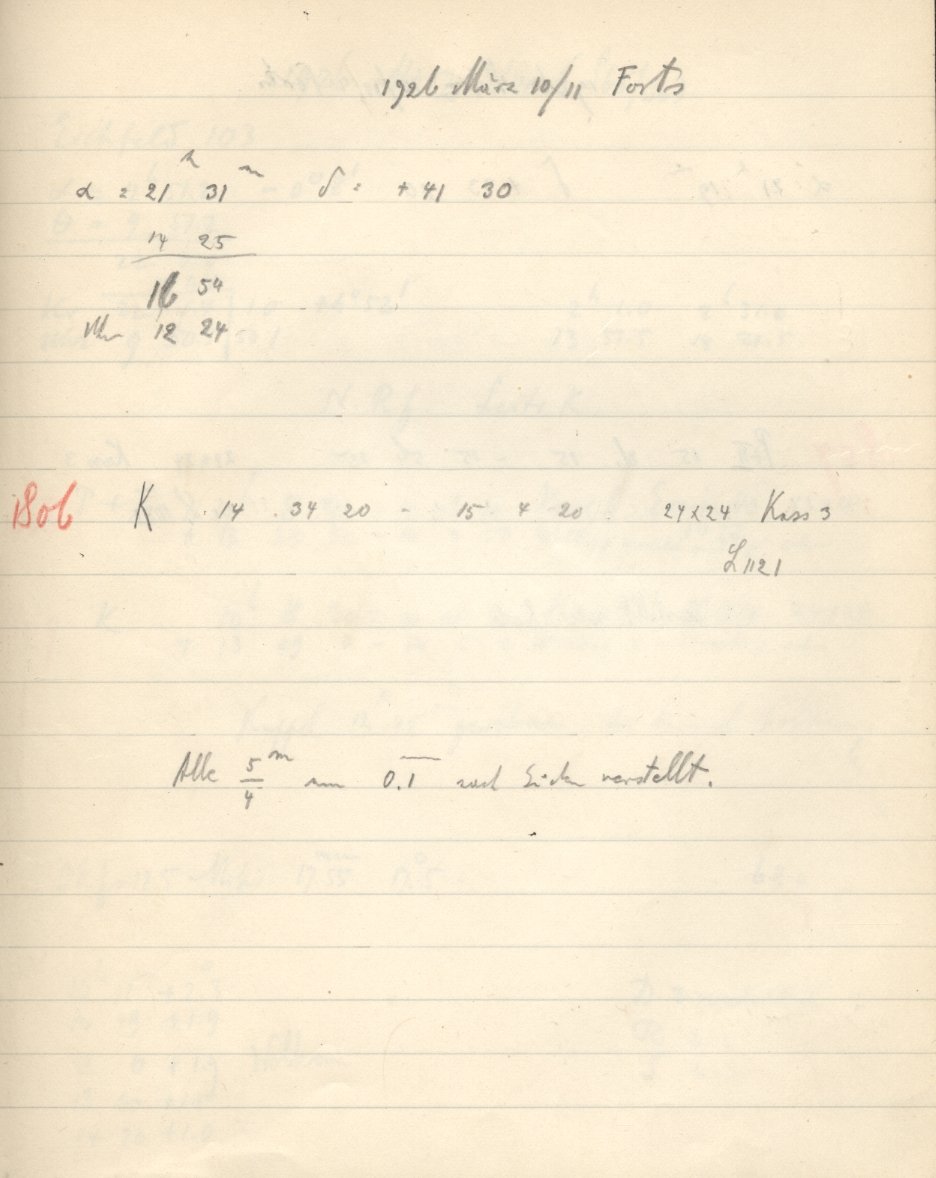 1926 März 10/11 Forts
α = 21 h 31 m δ = +41 30
14 25
16 54
Uhr 12 24
1806 K 14 34 20 - 15 4 20 24x24 Kass 3
L1121
Alle 5/4 m um 0.1 nach Süden verstellt.